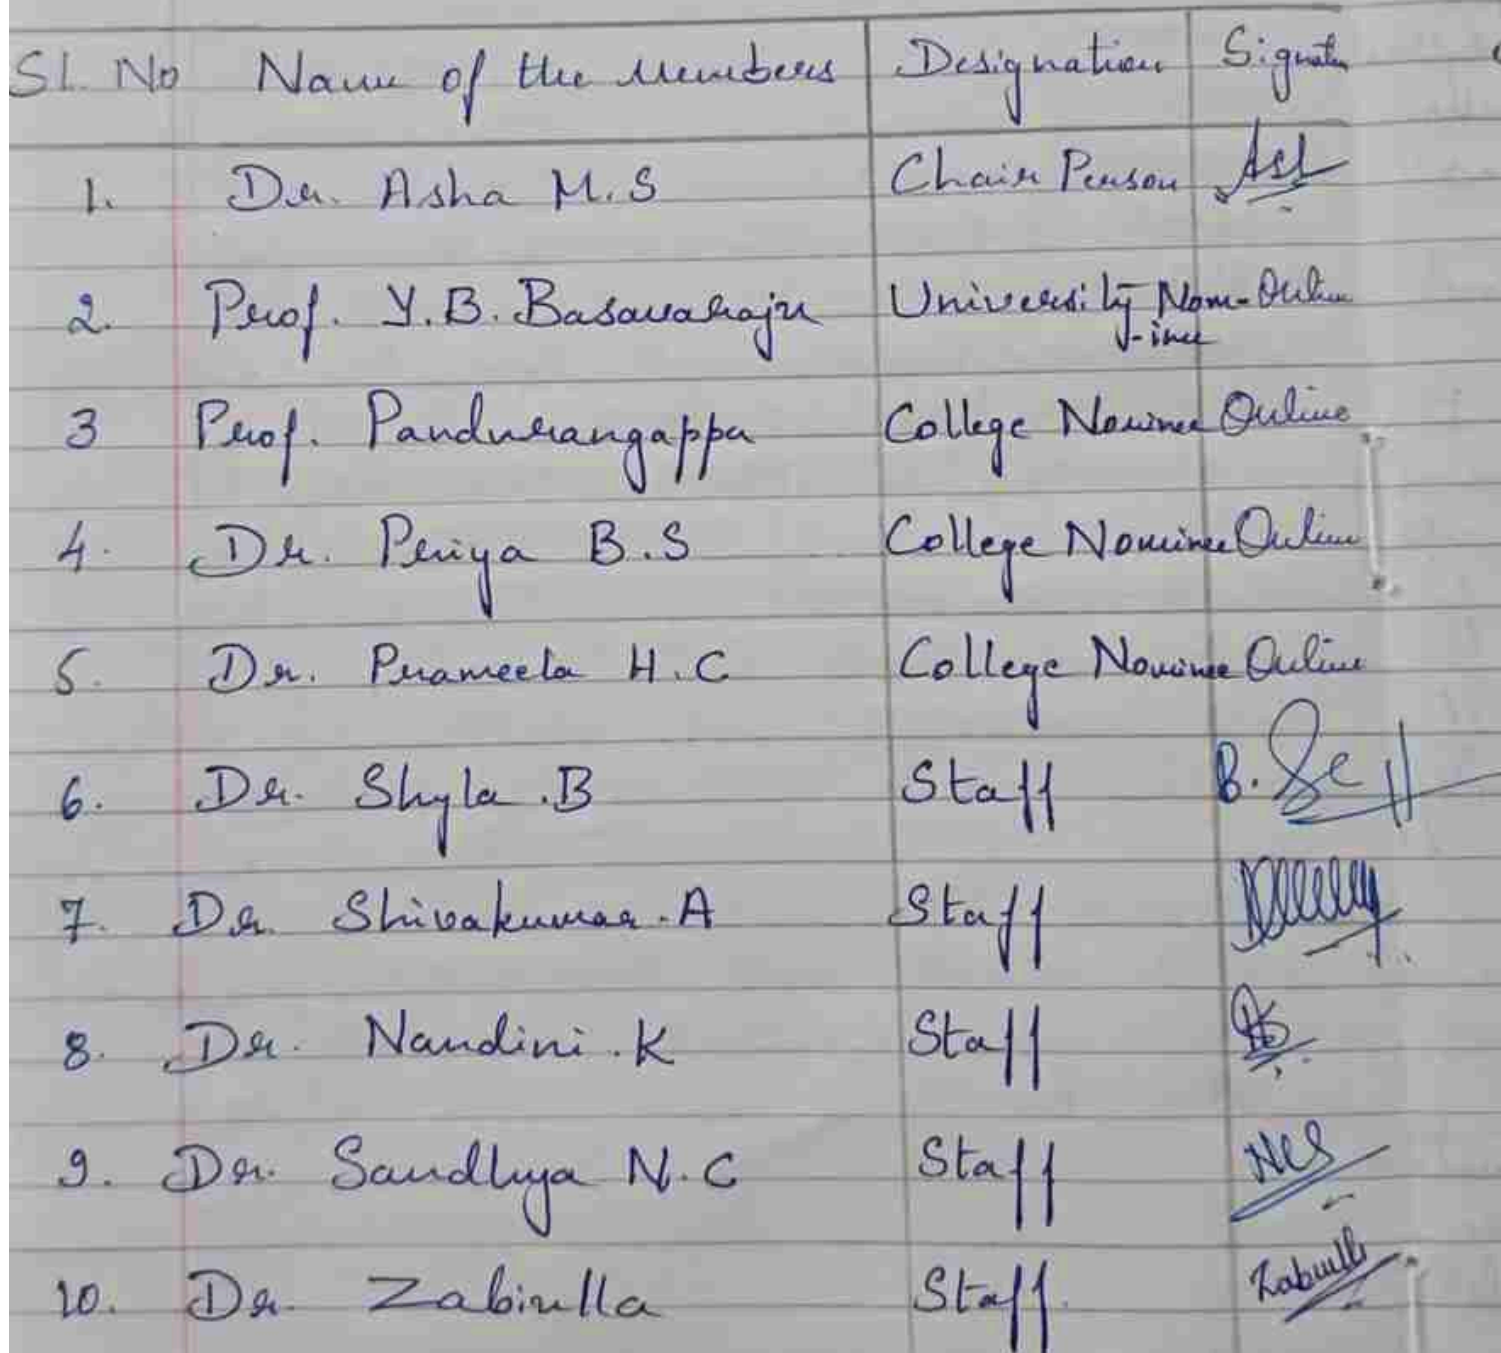 Sl. No Name of the Members Designation Signatu
1. Dr. Asha M.S Chair Person Ash
2. Prof. Y.B. Basavaraju University Nom- Online
-inee
3 Prof. Pandurangappa College Nominee Online
4. Dr. Priya B.S College Nominee Online
5. Dr. Prameela H.C College Nominee Online
6. Dr. Shyla .B Staff B.
7. Dr. Shivakumar.A Staff
8. Dr. Nandini.K Staff
9. Dr. Sandhya N.C Staff NCS
10. Dr. Zabiulla Staff. Zabiulla